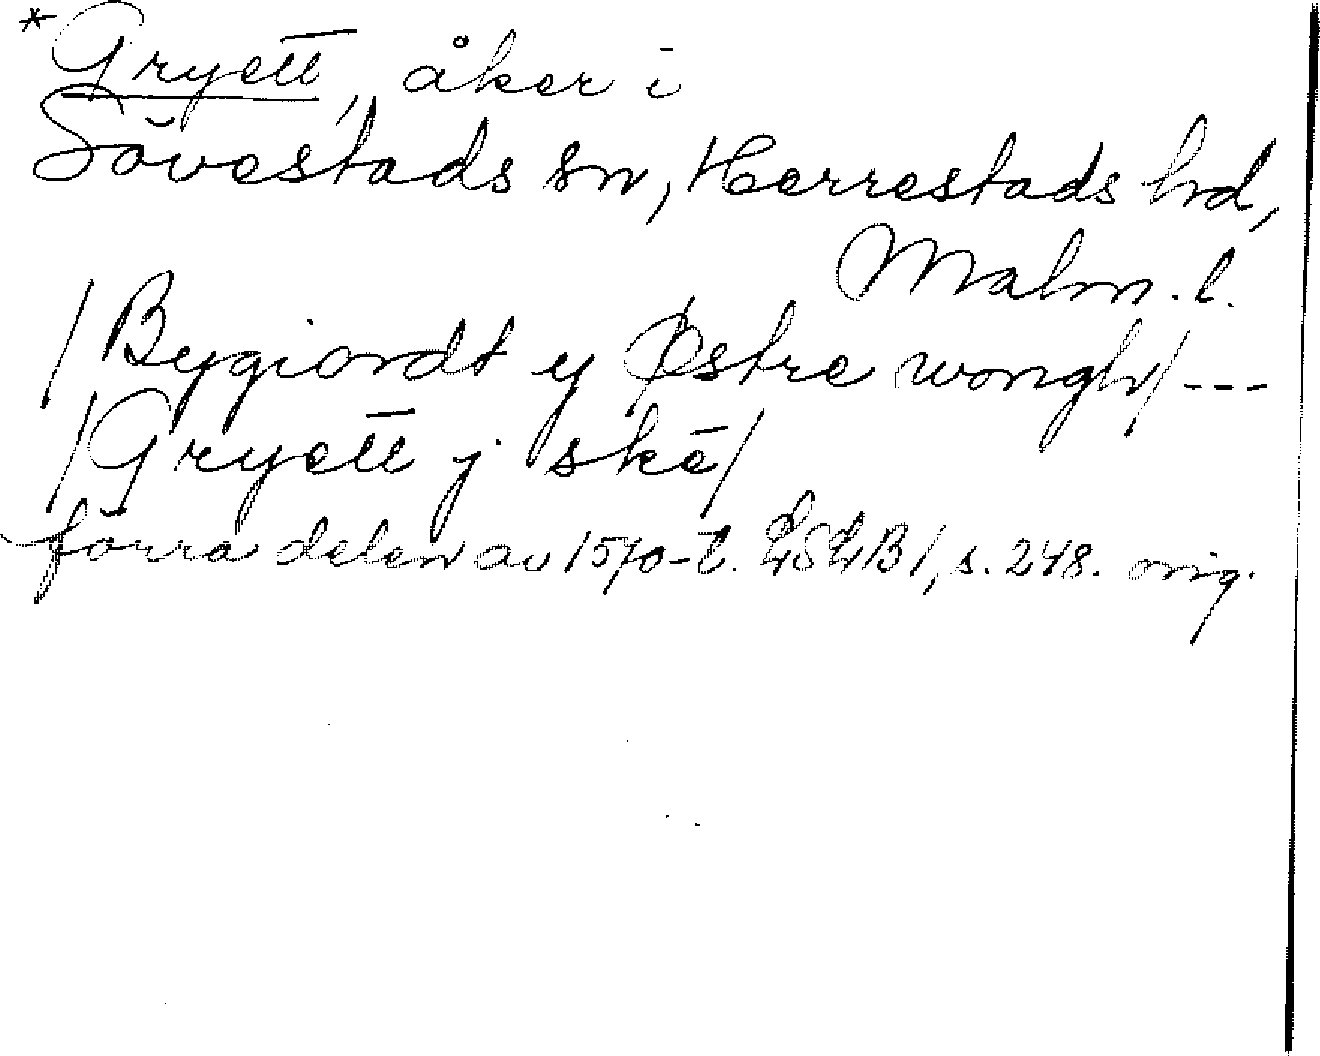 *Gryett, åker i
Sövestads sn, Herrestads hd,
Malm. l.
/Bygiordt y Østre wongh/---
/Gryett j skē/
förra delen av 1570-t. LSLB 1, s. 248. orig.